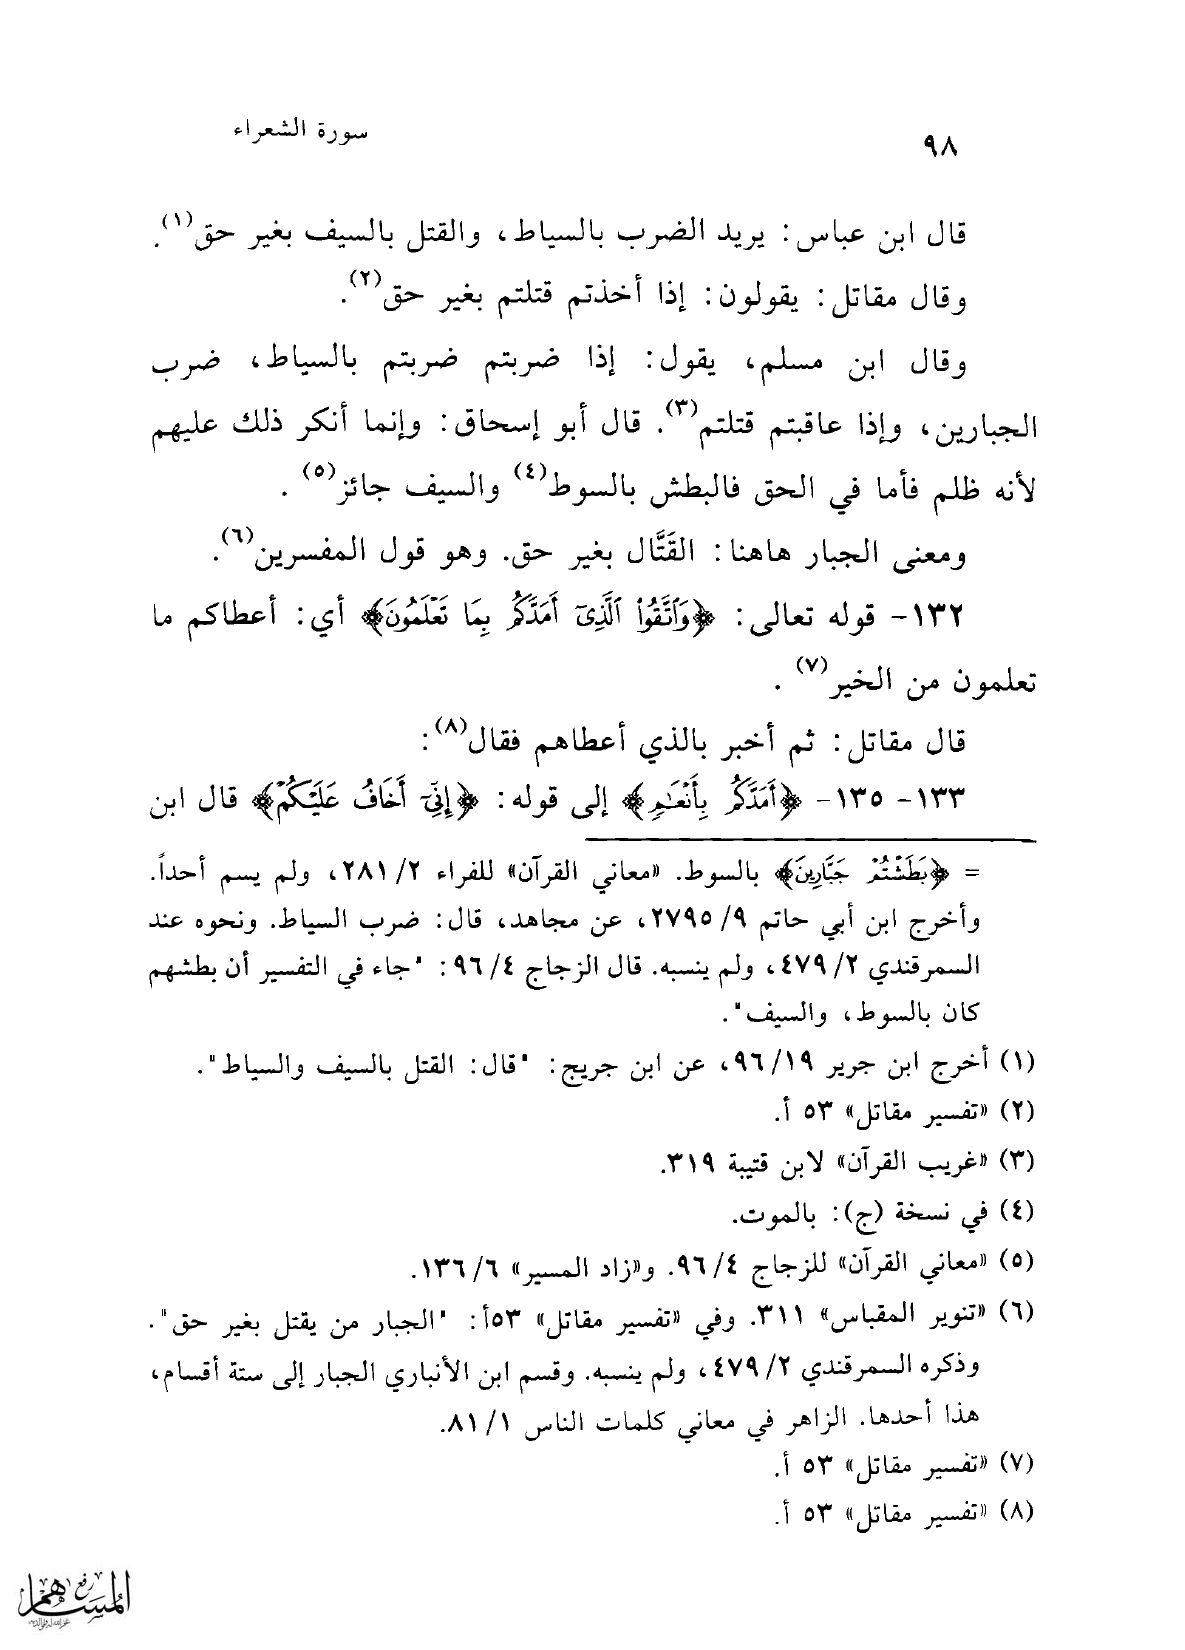 ٩٨
سورة الشعراء
قال ابن عباس: يريد الضرب بالسياط، والقتل بالسيف بغير حق(١).
وقال مقاتل: يقولون: إذا أخذتم قتلتم بغير حق(٢).
وقال ابن مسلم، يقول: إذا ضربتم ضربتم بالسياط، ضرب
الجبارين، وإذا عاقبتم قتلتم(٣). قال أبو إسحاق: وإنما أنكر ذلك عليهم
لأنه ظلم فأما في الحق فالبطش بالسوط(٤) والسيف جائز(٥) .
ومعنى الجبار هاهنا: القَتَّال بغير حق. وهو قول المفسرين(٦).
١٣٢- قوله تعالى: ﴿وَاتَّقُوا الَّذِي أَمَدَّكُم بِمَا تَعْلَمُونَ﴾ أي: أعطاكم ما
تعلمون من الخير(٧) .
قال مقاتل: ثم أخبر بالذي أعطاهم فقال(٨):
١٣٣- ١٣٥- ﴿أَمَدَّكُم بِأَنْعَامٍ﴾ إلى قوله: ﴿إِنِّي أَخَافُ عَلَيْكُمْ﴾ قال ابن
= ﴿بَطَشْتُمْ جَبَّارِينَ﴾ بالسوط. «معاني القرآن» للفراء ٢/ ٢٨١، ولم يسم أحداً.
وأخرج ابن أبي حاتم ٩/ ٢٧٩٥، عن مجاهد، قال: ضرب السياط. ونحوه عند
السمرقندي ٢/ ٤٧٩، ولم ينسبه. قال الزجاج ٤/ ٩٦: "جاء في التفسير أن بطشهم
كان بالسوط، والسيف".
(١) أخرج ابن جرير ١٩/ ٩٦، عن ابن جريج: "قال: القتل بالسيف والسياط".
(٢) «تفسير مقاتل» ٥٣ أ.
(٣) «غريب القرآن» لابن قتيبة ٣١٩.
(٤) في نسخة (ج): بالموت.
(٥) «معاني القرآن» للزجاج ٤/ ٩٦. و«زاد المسير» ٦/ ١٣٦.
(٦) «تنوير المقباس» ٣١١. وفي «تفسير مقاتل» ٥٣أ: "الجبار من يقتل بغير حق".
وذكره السمرقندي ٢/ ٤٧٩، ولم ينسبه. وقسم ابن الأنباري الجبار إلى ستة أقسام،
هذا أحدها. الزاهر في معاني كلمات الناس ١/ ٨١.
(٧) «تفسير مقاتل» ٥٣ أ.
(٨) «تفسير مقاتل» ٥٣ أ.